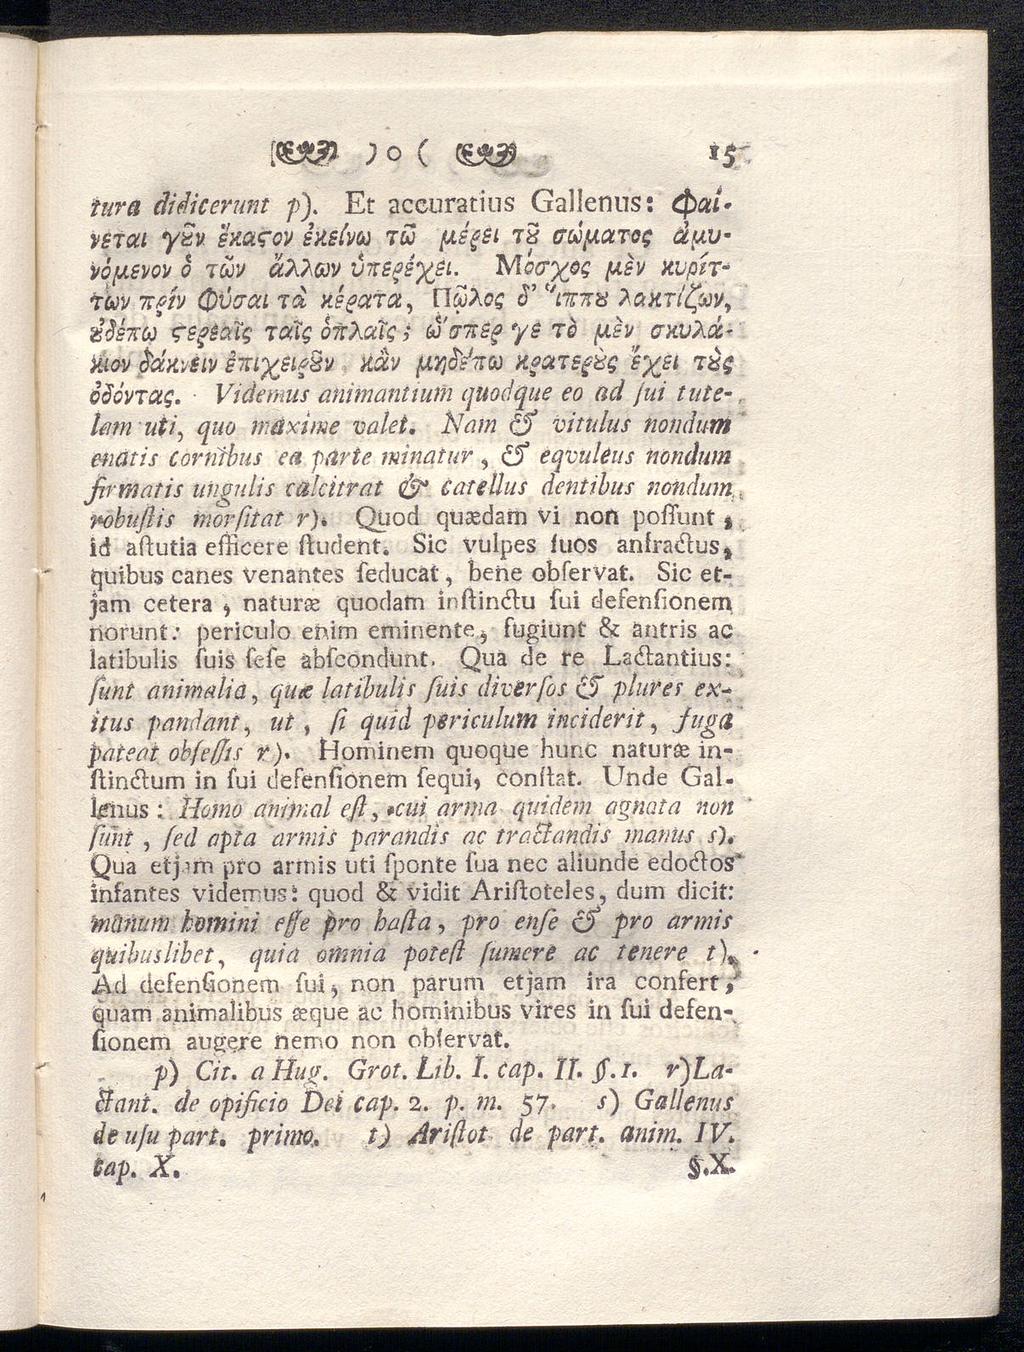 ) o ( 15
tura didicerunt p). Et accuratius Gallenus: Φαί-
νεται γȣ̃ν ἕκαϛον ἐκείνω τῶ μέρει τȣ̃ σώματος ἀμυ-
νόμενον ὁ τῶν ἄλλων ὑπερέχει. Μόσχος μὲν κυρίτ-
των πρίν Φύσαι τὰ κέρατα, Πῶλος δ' ἵππȣ λακτίζων,
ȣ̓δέπω ϛερεαῖς ταῖς ὁπλαῖς; ὥσπερ γε τὸ μὲν σκυλά-
κιον δάκνειν ἐπιχειρȣ̃ν κἂν μηδέπω κρατερȣ̀ς ἔχει τȣ̀ς
ὀδόντας. Videmus animantium quodque eo ad ſui tute-
lam uti, quo maxime valet. Nam & vitulus nondum
enatis cornibus ea parte minatur, & eqvuleus nondum
firmatis ungulis calcitrat & catellus dentibus nondum
robuſtis morſitat r). Quod quædam vi non poſſunt,
id aſtutia efficere ſtudent. Sic vulpes ſuos anfractus,
quibus canes venantes ſeducat, bene obſervat. Sic et-
jam cetera, naturæ quodam inſtinctu ſui defenſionem
norunt: periculo enim eminente, fugiunt & antris ac
latibulis ſuis ſeſe abſcondunt. Qua de re Lactantius:
ſunt animalia, quæ latibulis ſuis diverſos & plures ex-
itus pandant, ut, ſi quid periculum inciderit, fuga
pateat obſeſſis r). Hominem quoque hunc naturæ in-
ſtinctum in ſui defenſionem ſequi, conſtat. Unde Gal-
lenus: Homo animal eſt, cui arma quidem agnata non
ſunt, ſed apta armis parandis ac tractandis manus s).
Qua etjam pro armis uti ſponte ſua nec aliunde edoctos
infantes videmus: quod & vidit Ariſtoteles, dum dicit:
manum homini eſſe pro haſta, pro enſe & pro armis
quibuslibet, quia omnia poteſt ſumere ac tenere t).
Ad defenſionem ſui, non parum etjam ira confert,
quam animalibus æque ac hominibus vires in ſui defen-
ſionem augere nemo non obſervat.
p) Cit. a Hug. Grot. Lib. I. cap. II. §.1. r)La-
ctant. de opificio Dei cap. 2. p. m. 57. s) Gallenus
de uſu part. primo. t) Ariſtot. de part. anim. IV.
cap. X. §.X.